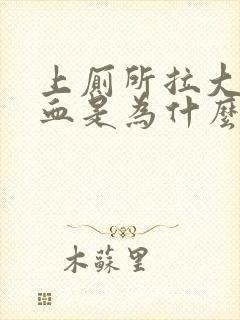 上厕所拉大
血是為什麼
木蘇里